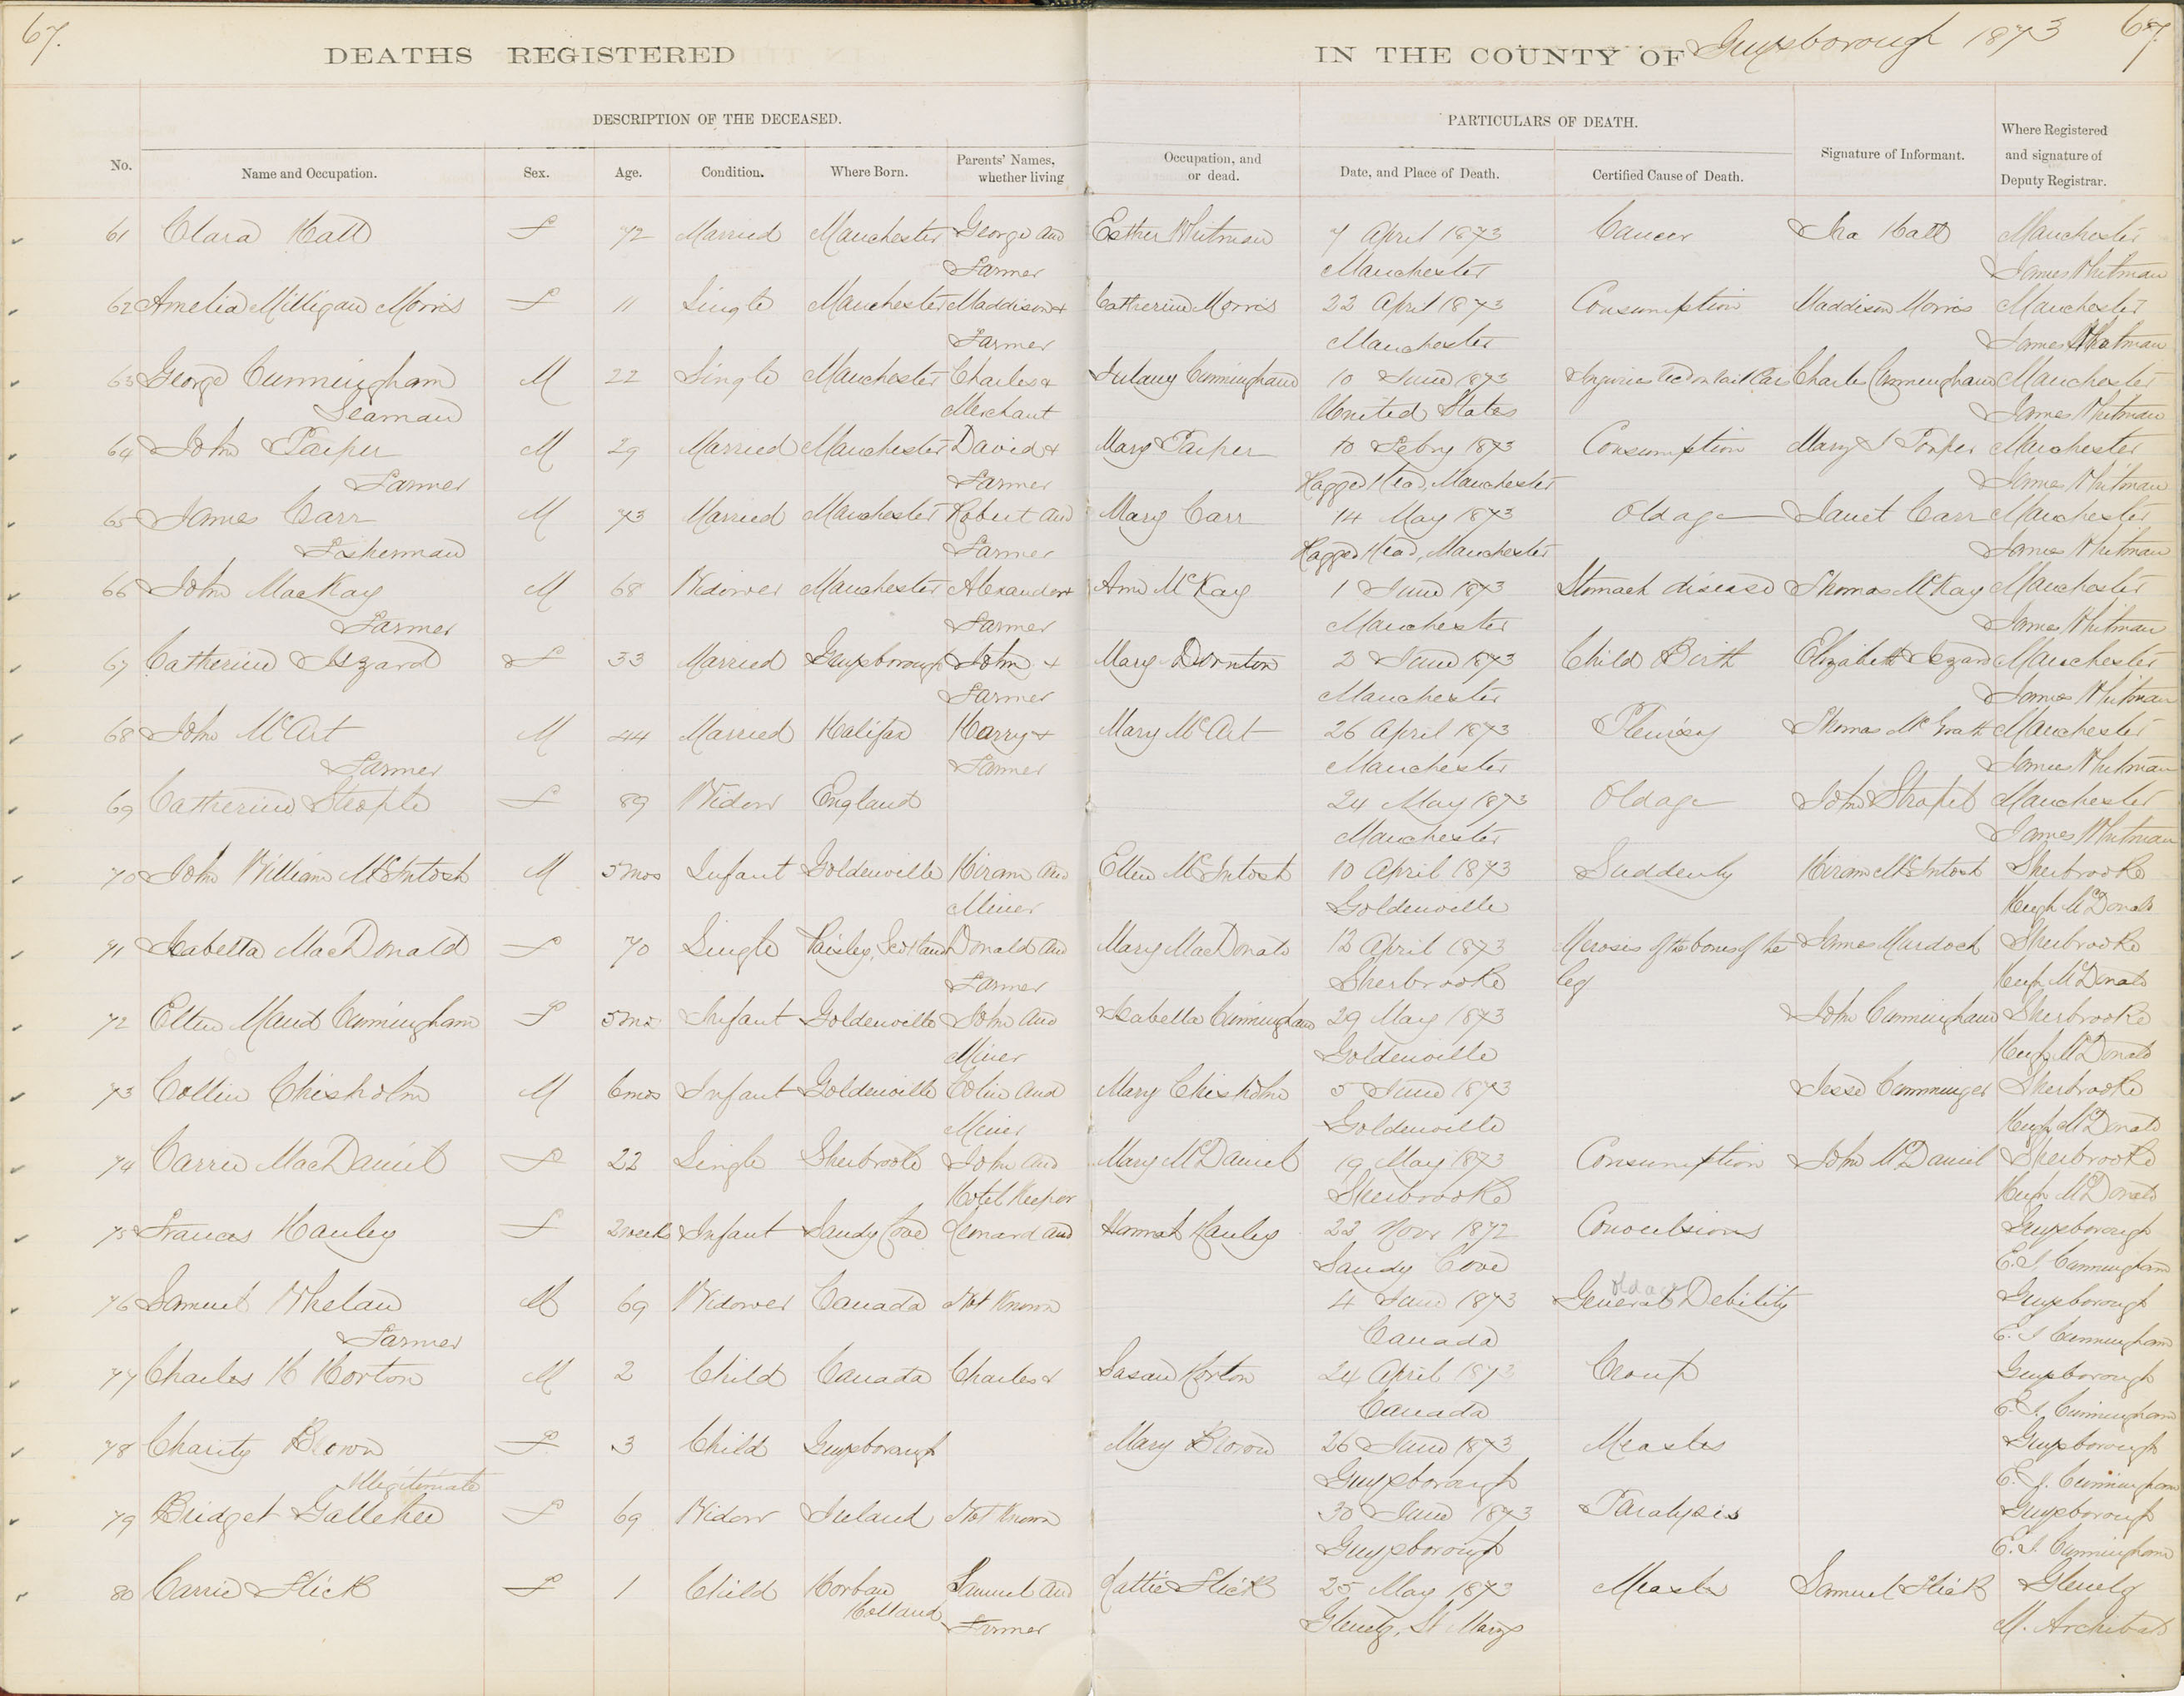 67.
DEATHS REGISTERED
IN THE COUNTY OF Guysborough 1873
67
DESCRIPTION OF THE DECEASED.
PARTICULARS OF DEATH.
No.
Name and Occupation.
Sex.
Age.
Condition.
Where Born.
Parents' Names, whether living
Occupation, and or dead.
Date, and Place of Death.
Certified Cause of Death.
Signature of Informant.
Where Registered and signature of Deputy Registrar.
61 Clara Hatt F 72 Married Manchester George and Esther Whitman 7 April 1873 Cancer Ira Hatt Manchester
Farmer Manchester James Whitman
62 Amelia Milligan Morris F 11 Single Manchester Maddison & Catherine Morris 22 April 1873 Consumption Maddison Morris Manchester
Farmer Manchester James Whitman
63 George Cunningham M 22 Single Manchester Charles & Cunningham 10 June 1873 Injuries Charles Cunningham Manchester
Seaman Merchant United States James Whitman
64 John Paiper M 29 Married Manchester David & Mary Paiper 10 Febry 1873 Consumption Mary Manchester
Farmer Farmer Ragged Head, Manchester James Whitman
65 James Carr M 73 Married Manchester Robert and Mary Carr 14 May 1873 Old age Janet Carr Manchester
Fisherman Farmer Ragged Head, Manchester James Whitman
66 John MacKay M 68 Widower Manchester Alexander & Ann McKay 1 June 1873 Stomach disease Thomas McKay Manchester
Farmer Farmer Manchester James Whitman
67 Catherine Iszard F 33 Married Guysborough John & Mary Dornton 2 June 1873 Child Birth Elizabeth Iszard Manchester
Farmer Manchester James Whitman
68 John McArt M 44 Married Halifax Harry & Mary McArt 26 April 1873 Pleurisy Thomas McGrath Manchester
Farmer Farmer Manchester James Whitman
69 Catherine Strople F 89 Widow England 24 May 1873 Old age John Manchester
Manchester James Whitman
70 John William McIntosh M 5 mos Infant Goldenville Hiram and Ellen McIntosh 10 April 1873 Suddenly Hiram McIntosh Sherbrooke
Miner Goldenville Hugh McDonald
71 Isabella MacDonald F 70 Single Paisley, Scotland Donald and Mary MacDonald 12 April 1873 Necrosis of the bones of the James Murdoch Sherbrooke
Farmer Sherbrooke leg Hugh McDonald
72 Ellen Maud Cunningham F 5 mos Infant Goldenville John and Isabella Cunningham 29 May 1873 John Cunningham Sherbrooke
Miner Goldenville Hugh McDonald
73 Collin Chisholm M 6 mos Infant Goldenville Colin and Mary Chisholm 5 June 1873 Jesse Cumminger Sherbrooke
Miner Goldenville Hugh McDonald
74 Carrie MacDaniel F 22 Single Sherbrooke John and Mary McDaniel 19 May 1873 Consumption John McDaniel Sherbrooke
Hotel Keeper Sherbrooke Hugh McDonald
75 Frances Hanley F 2 weeks Infant Sandy Cove Leonard and Hannah Hanley 22 Novr 1872 Convulsions Guysborough
Sandy Cove E. I. Cunningham
76 Samuel Whelan M 69 Widower Canada Not Known 4 June 1873 General Debility old age Guysborough
Farmer Canada E. I. Cunningham
77 Charles H Horton M 2 Child Canada Charles & Susan Horton 24 April 1873 Croup Guysborough
Canada E. I. Cunningham
78 Charity Brown F 3 Child Guysborough Mary Brown 26 June 1873 Measles Guysborough
Illegitimate Guysborough E. I. Cunningham
79 Bridget Gallehee F 69 Widow Ireland Not Known 30 June 1873 Paralysis Guysborough
Guysborough E. I. Cunningham
80 Carrie Slick F 1 Child Samuel and Lattie Slick 25 May 1873 Measles Samuel Slick Glenelg
Holland Farmer Glenelg, St Marys M. Archibald